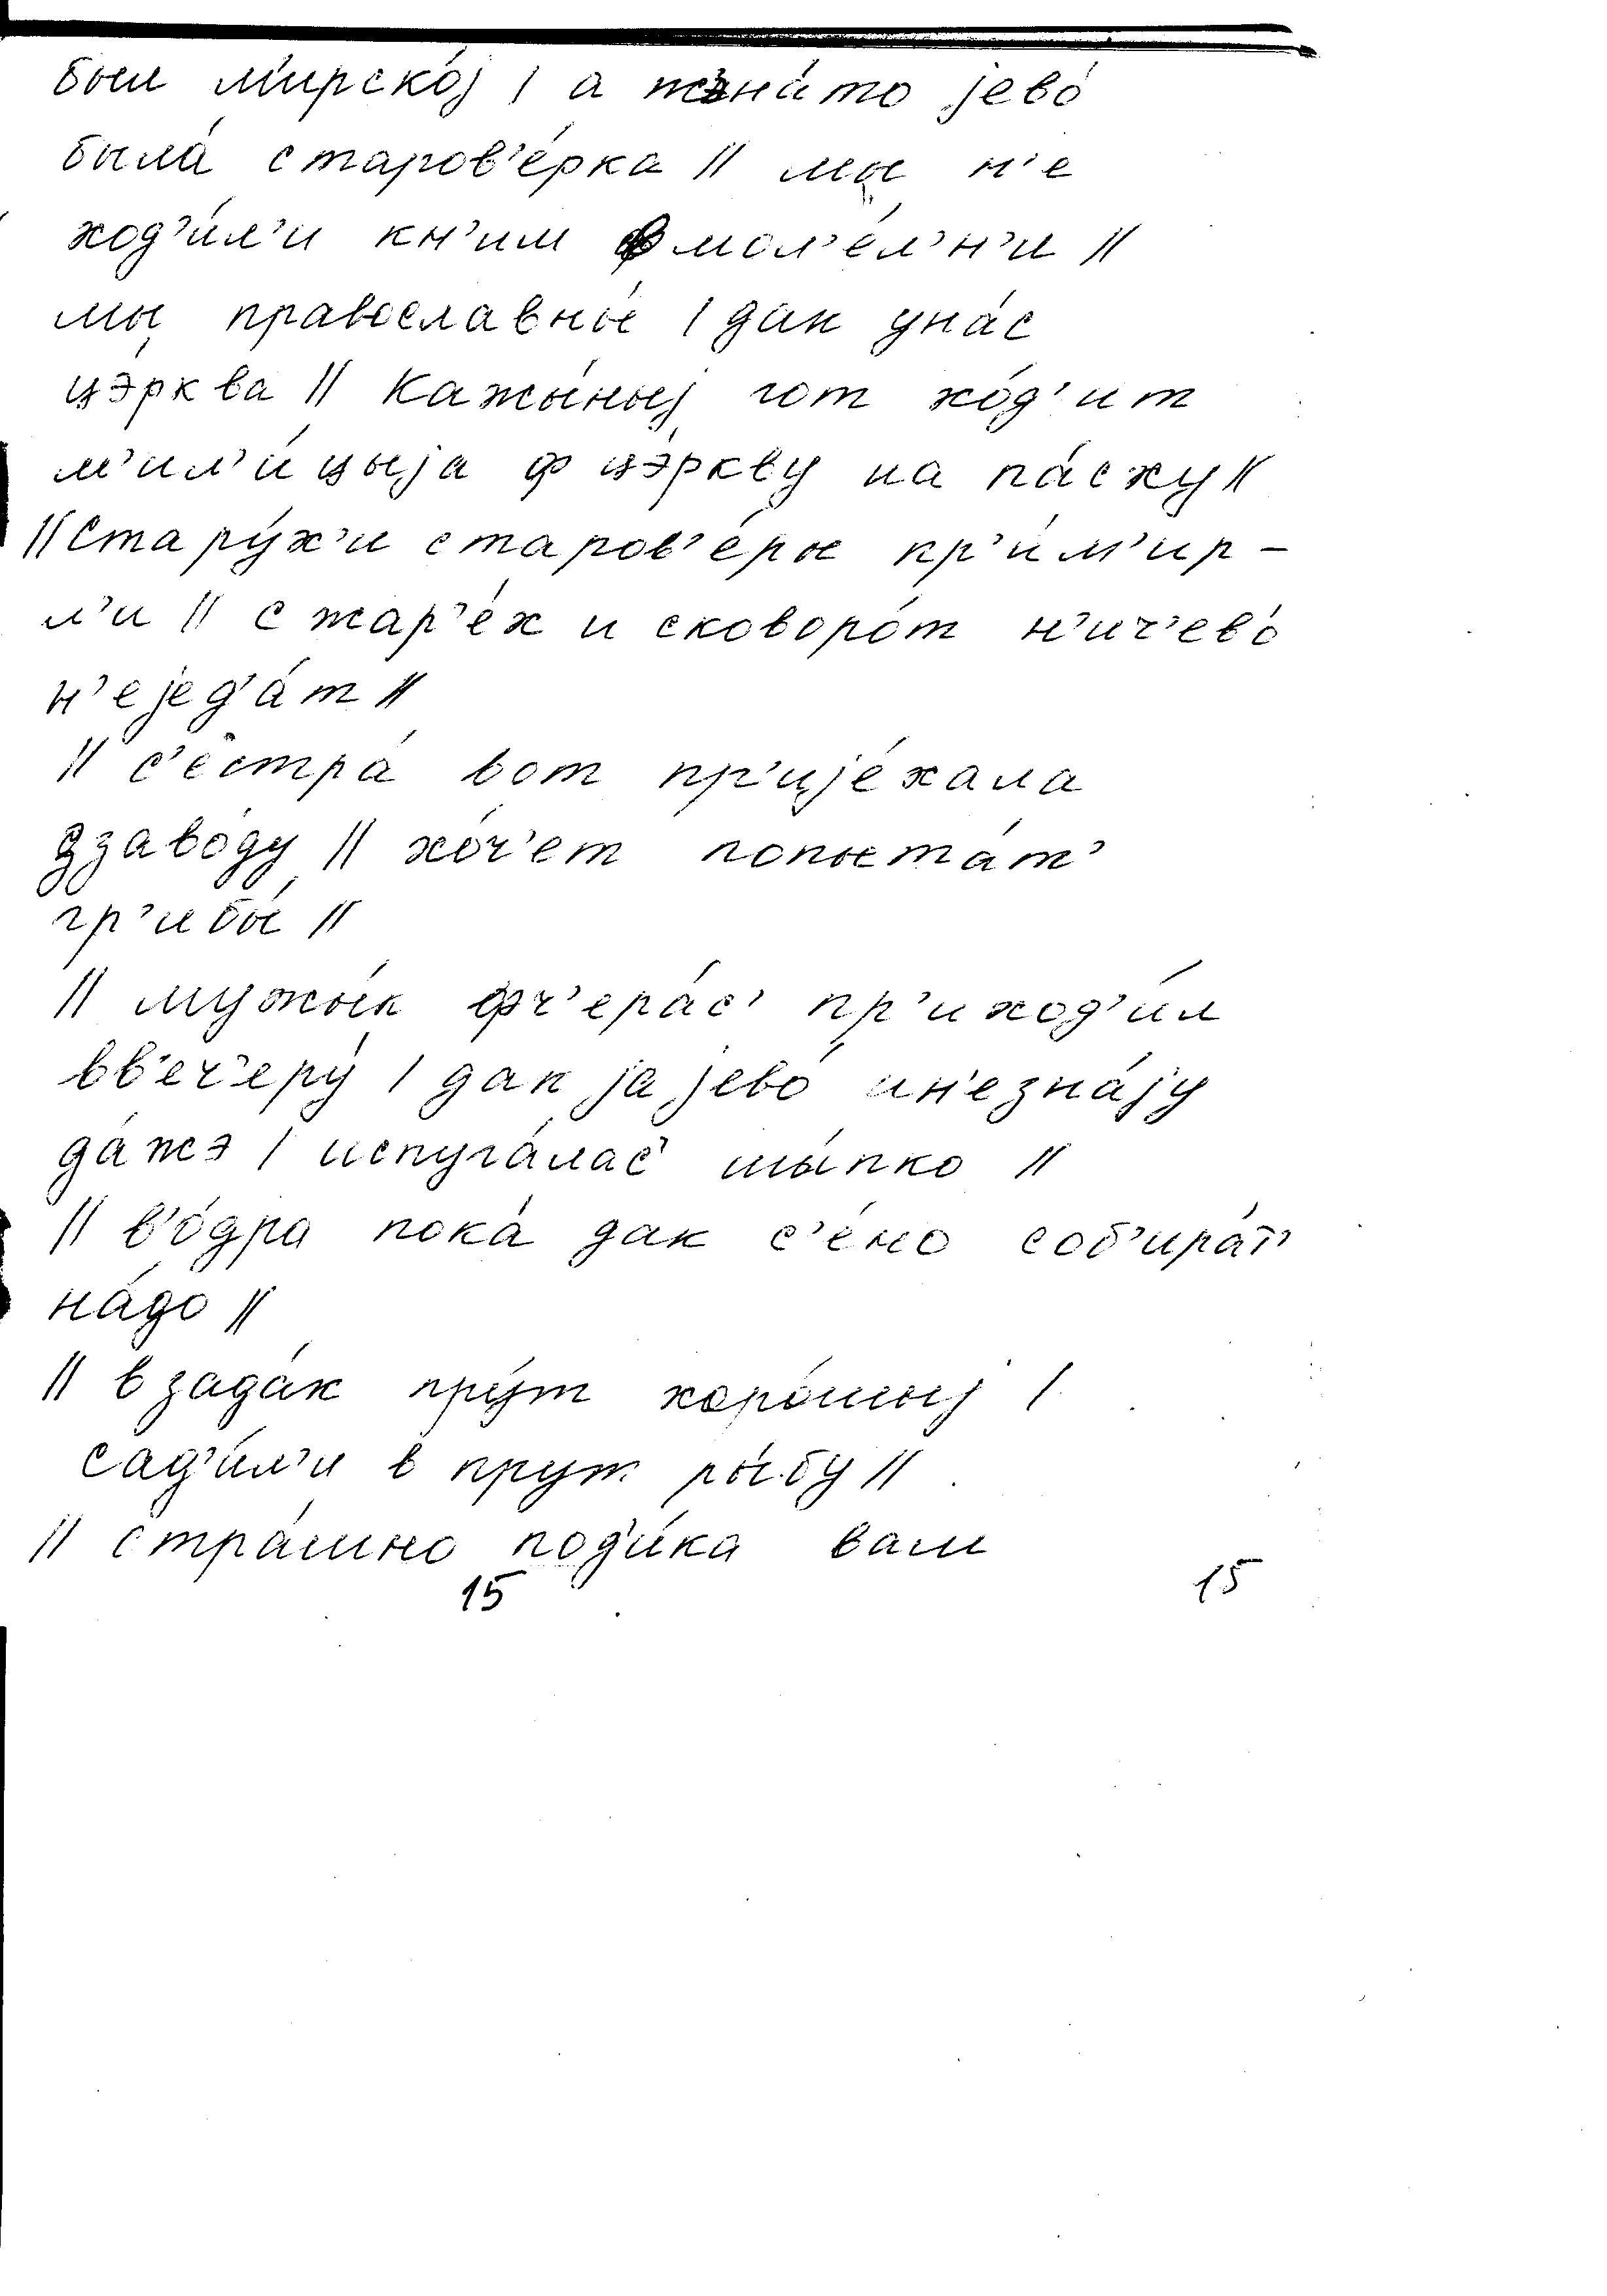 был м'ирско́ј | а жэна́то јево́
была́ старов'е́рка || мы н'е
ход'и́л'и кн'им в мол'е́л'н'и ||
мы православны́е | дак уна́с
цэ́рква || Кажы́ныј гот хо́д'ит
м'ил'и́цыја ф цэ́ркву на па́сху ||
|| Стару́х'и старов'е́ры кр'и́м'ир –
л'и || с тар'е́х и сковоро́т н'ич'ево́
н'ејед'а́т ||
|| с'естра́ вот пр'ије́хала
ззаво́ду || хо́ч'ет попыта́т'
гр'ибы́ ||
|| мужы́к фч'ера́с' пр'иход'и́л
вв'еч'еру́ | дак ја јево́ ин'езна́ју
да́жэ | испуга́лас' шы́пко ||
|| в'о́дра пока́ дак с'е́но соб'ира́т'
на́до ||
|| в зада́к пру́т хоро́шыј |
сад'и́л'и в прут ры́бу ||
|| стра́шно под'и́ка вам
15 15